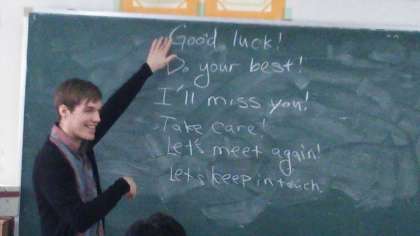 Good luck!
Do your best!
I'll miss you!
Take care!
Let's meet again!
Let's keep in touch.